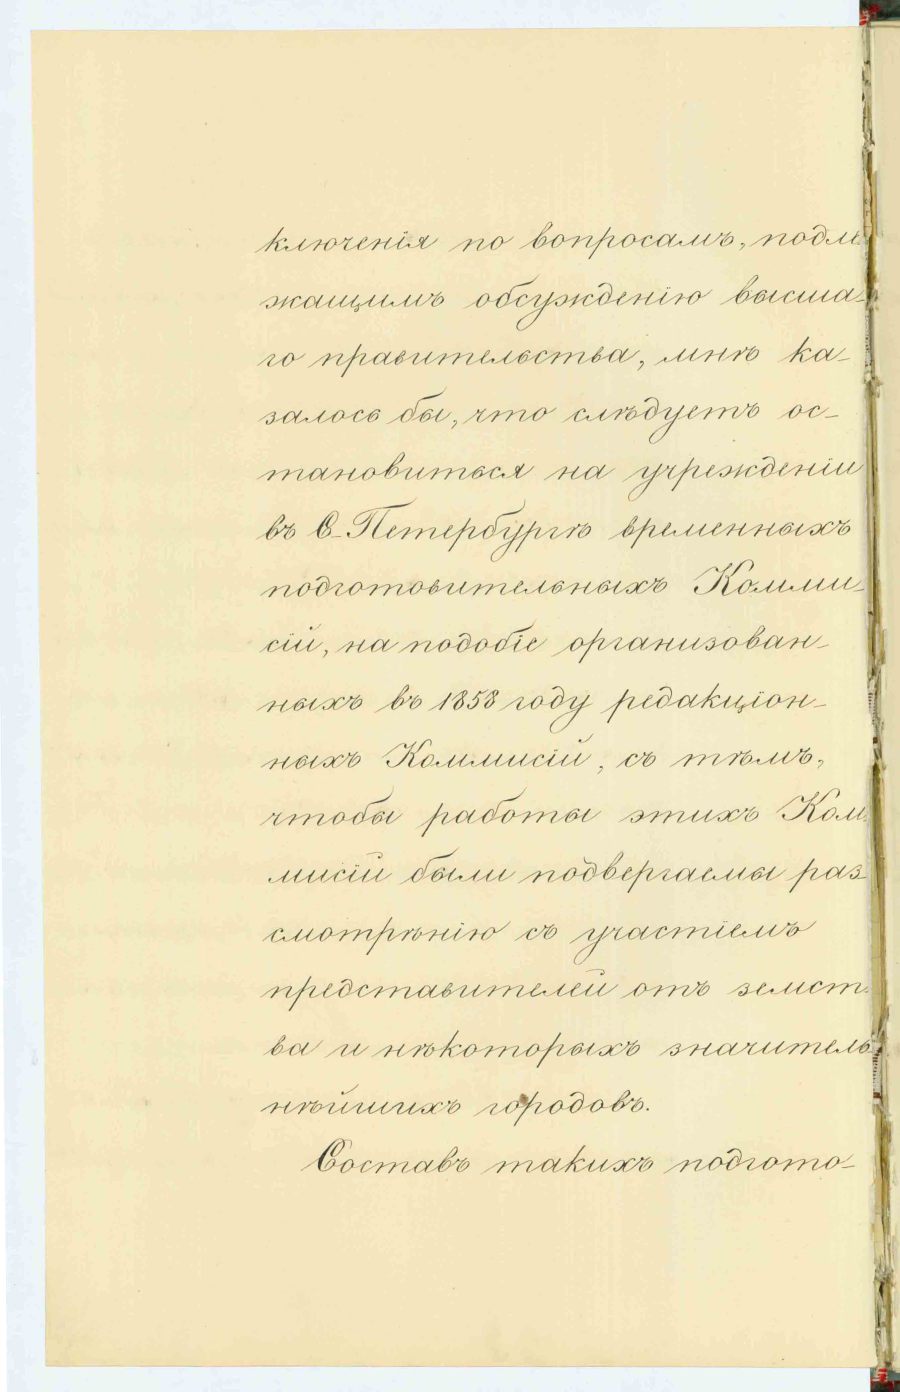 ключенія по вопросамъ, подле
жащимъ обсужденію высша-
го правительства, мнѣ ка-
залось бы, что слѣдуетъ ос-
тановиться на учрежденіи
въ С.-Петербургѣ временныхъ
подготовительныхъ Комми-
сій, на подобіе организован-
ныхъ въ 1858 году редакціон-
ныхъ Коммисій, съ тѣмъ,
чтобы работы этихъ Ком-
мисій были подвергаемы раз-
смотрѣнію съ участіемъ
представителей отъ земст-
ва и нѣкоторыхъ значитель
нѣйшихъ городовъ.
Составъ такихъ подгото-